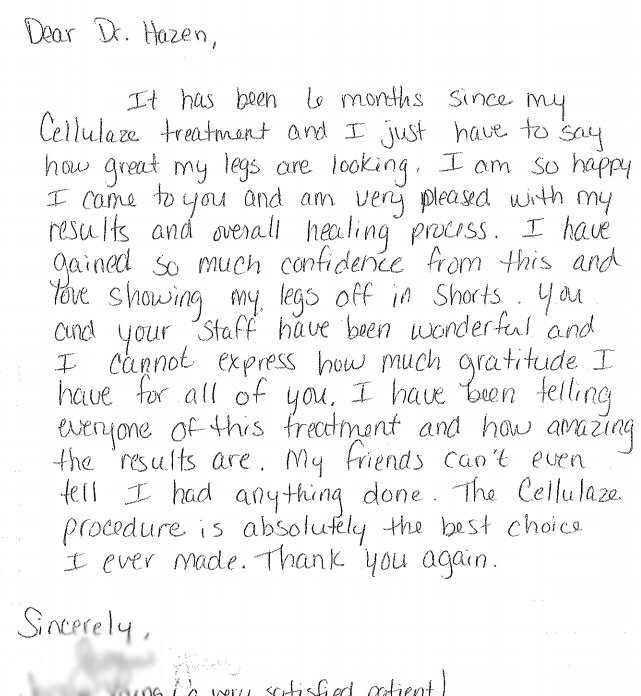 Dear Dr. Hazen,
It has been 6 months since my
Cellulaze treatment and I just have to say
how great my legs are looking. I am so happy
I came to you and am very pleased with my
results and overall healing process. I have
gained so much confidence from this and
love showing my legs off in shorts. You
and your staff have been wonderful and
I cannot express how much gratitude I
have for all of you. I have been telling
everyone of this treatment and how amazing
the results are. My friends can't even
tell I had anything done. The Cellulaze
procedure is absolutely the best choice
I ever made. Thank you again.
Sincerely,
(a very satisfied patient)